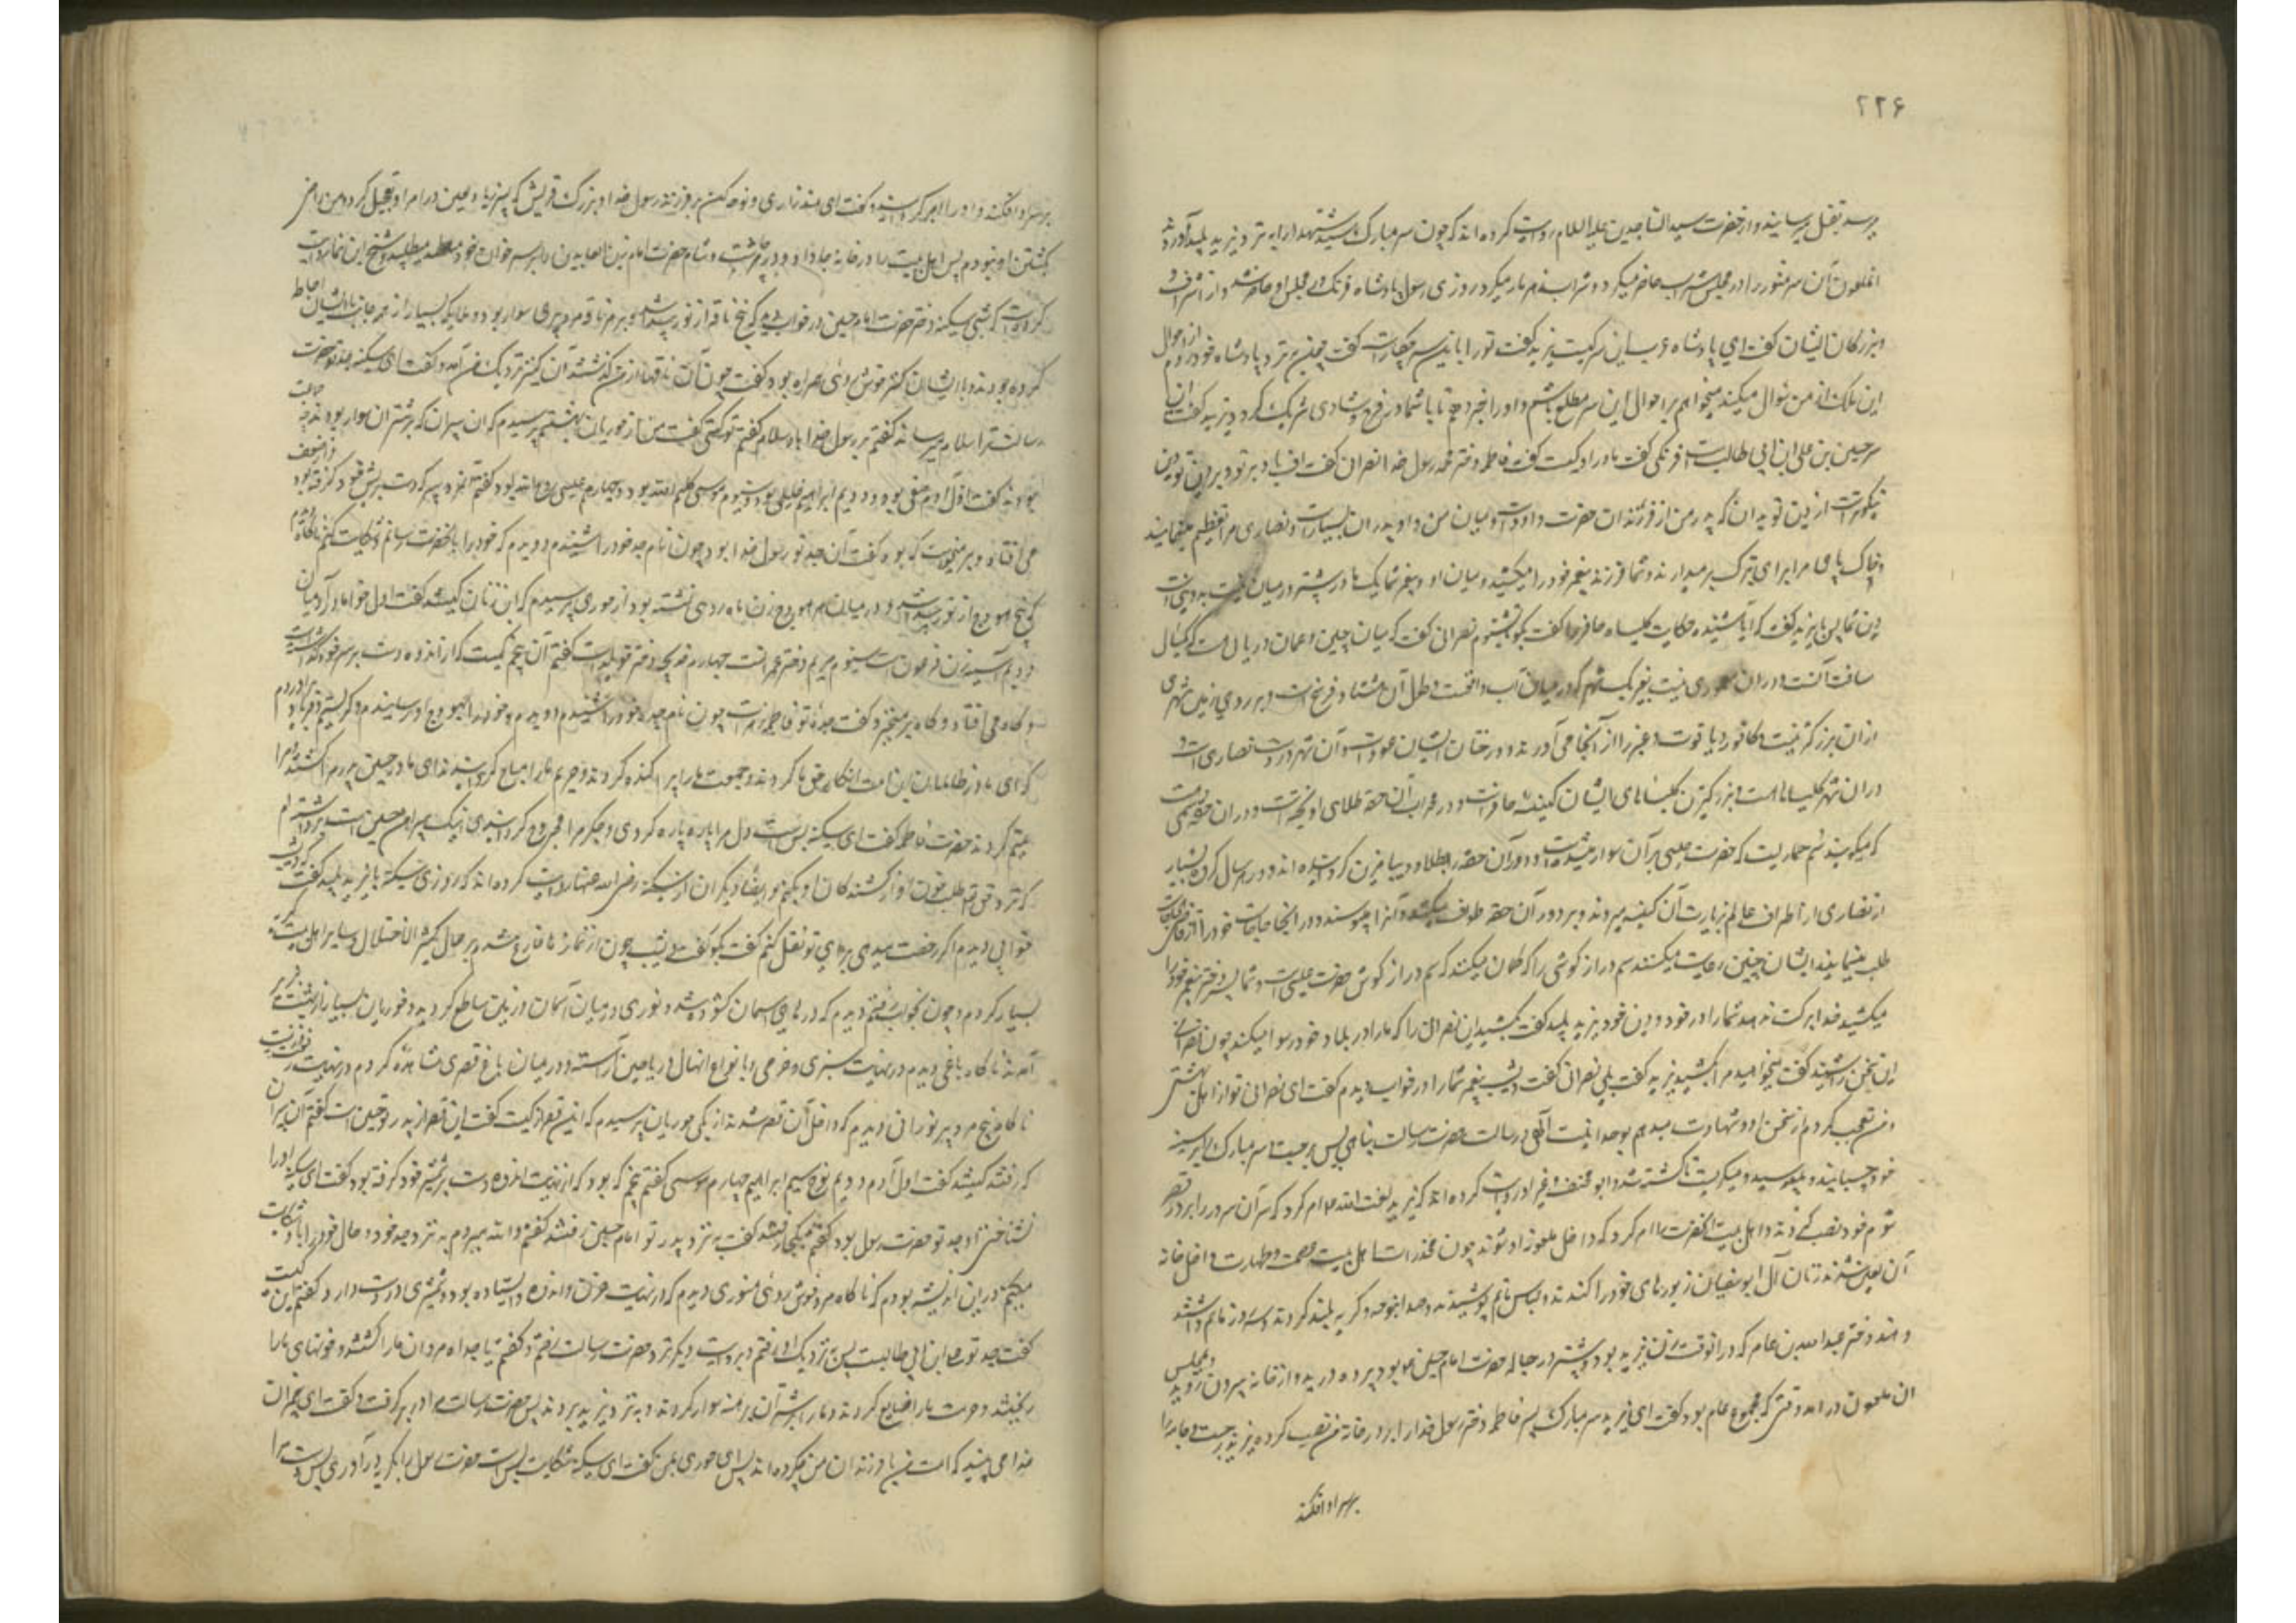 ۲۲۶
برسد بقتل میرسانید و از حضرت سید الساجدین علیه السلام روایت کرده اند که چون سر مبارک سید شهدا را به نزد یزید پلید آوردند
آنملعون آن سر منور را در مجلس شراب حاضر میکرد و شراب زهر مار میکرد روزی رسول پادشاه فرنگ در مجلس او حاضر شد و از اشراف
و بزرگان ایشان گفت ای پادشاه عرب این سر کیست یزید گفت تو را با این سر چکار است گفت چون بنزد پادشاه خود روم از احوال
این ملک از من سؤال میکند میخواهم بر احوال این سر مطلع باشم و او را خبر دهم تا با شما در فرح و شادی شریک گردد یزید گفت این
سر حسین بن علی ابن ابی طالب است فرنگی گفت مادر او کیست گفت فاطمه دختر محمد رسول خدا نصرانی گفت اف باد بر تو و بر دین تو دین من
نیکوتر است از دین تو بدان که پدر من از فرزندان حضرت داود است و میان من و او پدران بسیار است و نصاری مرا تعظیم مینمایند
و خاک پای مرا برای تبرک برمیدارند و شما فرزند پیغمبر خود را میکشید و میان او و پیغمبر شما یک مادر بیشتر در میان نیست بد دینی است
دین شما پس با یزید گفت که آیا شنیده حکایت کلیسای حافر را گفت بگو تا بشنوم نصرانی گفت که میان چین و عمان دریائی هست که یکسال
مسافت آنست و در آن معموری نیست بغیر یک شهر که در میان آب واقعست و طول آن هشتاد فرسخ است و بر روی زمین شهری
از آن بزرگتر نیست و کافور و یاقوت و عنبر را از آنجا می آورند و درختان ایشان عود است و آن شهر در دست نصاری است و
در آن شهر کلیسیاها هست و بزرگترین کلیسیاهای ایشان کنیسه حافر است و در محراب آن حقه طلای آویخته است و در آن حقه سمی هست
که میگویند سم حماریست که حضرت عیسی بر آن سوار میشده است و دور آن حقه را بطلا و دیبا مزین گردانیده اند و در هر سال گروه بسیار
از نصاری از اطراف عالم بزیارت آن کنیسه میروند و بر دور آن حقه طواف میکنند و آنرا میبوسند و در آنجا حاجات خود را از قاضی الحاجات
طلب مینمایند ایشان چنین رعایت میکنند سم دراز گوشی را که گمان میکنند که سم دراز گوش حضرت عیسی است و شما پسر دختر پیغمبر خود را
میکشید خدا برکت ندهد شما را در خود و دین خود یزید پلید گفت بکشید این نصرانی را که ما را در بلاد خود رسوا میکند چون نصرانی
این سخن را شنید گفت میخواهید مرا بکشید یزید گفت بلی نصرانی گفت دیشب پیغمبر شما را در خواب دیدم گفت ای نصرانی تو از اهل بهشتی
و من تعجب کردم از سخن او و شهادت میدهم بوحدانیت الهی و رسالت حضرت رسالت پناهی پس برجست و سر مبارک را بر سینه
خود چسبانید و میبوسید و میگریست تا کشته شد و ابو مخنف و غیر او روایت کرده اند که یزید لعنت الله امر کرد که سر آن سرور را بر در قصر
شوم خود نصب کردند و اهل بیت آنحضرت را امر کرد که داخل خانه او شوند چون مخدرات اهل بیت عصمت و طهارت داخل خانه
آن لعین شدند زنان آل ابو سفیان زیورهای خود را کندند و لباس ماتم پوشیدند و صدا بنوحه و گریه بلند کردند و سه روز ماتم داشتند
و هند دختر عبد الله بن عامر که در آنوقت زن یزید بود و پیشتر در حباله حضرت امام حسین بود پرده درید و از خانه بیرون دوید و بمجلس
آن ملعون در آمد وقتی که مجمع عام بود گفت ای یزید سر مبارک پسر فاطمه دختر رسول خدا را بر در خانه من نصب کرده یزید برجست و جامه را
بر سر او افکند
بر سر او افکند و او را برگردانید و گفت ای هند زاری و نوحه کن بر فرزند رسول خدا و بزرگ قریش که پسر زیاد لعین در امر او تعجیل کرد و من راضی
بکشتن او نبودم پس اهل بیت را در خانه جا داد و در هر چاشت و شام حضرت امام زین العابدین را بر سر خوان خود میطلبید و شیخ ابن نما روایت
کرده است که شبی سکینه دختر حضرت امام حسین در خواب دید که پنج ناقه از نور پیدا شد و بر هر ناقه مرد پیری سوار بود و ملایکه بسیار از هر جانب بایشان احاطه
کرده بودند و با ایشان کنیز خوش روئی همراه بود گفت چون آن ناقها از من گذشتند آن کنیز نزدیک من آمد و گفت ای سکینه جد تو حضرت
رسالت ترا سلام میرساند گفتم بر رسول خدا باد سلام گفتم تو کیستی گفت من از حوریان بهشتم پرسیدم که آن پیران که بر شتران سوار بودند چه جماعت
بودند گفت اول آدم صفی بود و دویم ابراهیم خلیل بود و سیوم موسی کلیم الله بود و چهارم عیسی روح الله بود گفتم آن مرد پیر که دست بریش خود گرفته بود و از ضعف
می افتاد و بر میخاست که بود گفت آن جد تو رسول خدا بود چون نام جد خود را شنیدم دویدم که خود را بآنحضرت رسانم و شکایت کنم ناگاه دیدم
که پنج هودج از نور پیدا شد و در میان هر هودج زن ماه روئی نشسته بود از حوری پرسیدم که این زنان کیستند گفت اول حوا مادر آدمیان
دویم آسیه زن فرعون است سیوم مریم دختر عمرانست چهارم خدیجه دختر خویلد است گفتم آن پنجم کیست که از اندوه دست بر سر خود گذاشته است
و گاه می افتاد و گاه بر میخیزد گفت جده تو فاطمه زهرا است چون نام جده خود را شنیدم دویدم و خود را بهودج او رسانیدم و گریستم و فریاد برآوردم
که ای مادر ظالمان این امت انکار حق ما کردند و جمعیت ما را پراکنده کردند و حریم ما را مباح گردانیدند ای مادر حسین پدرم را کشتند و مرا
یتیم کردند حضرت فاطمه گفت ای سکینه بس است دل مرا پاره پاره کردی و جگر مرا مجروح گردانیدی اینک پیراهن حسین است برداشته ام
که نزد حق تعالی طلب خون او از کشندگان او بکنم و ایضا دیگران از سکینه رضی الله عنها روایت کرده اند که روزی سکینه با یزید پلید گفت که دوش
خوابی دیدم اگر رخصت میدهی برای تو نقل کنم گفت بگو گفت دیشب چون از نماز فارغ شدم بر حال کثیر الاختلال و سایر اهل بیت گریه
بسیار کردم و چون بخواب رفتم دیدم که درهای آسمان گشوده شد و نوری در میان آسمان و زمین ساطع گردید و حوریان بسیار از بهشت بزیر
آمدند ناگاه باغی دیدم در نهایت سبزی و خرمی و بانواع انهال و ریاحین آراسته و در میان باغ قصری مشاهده کردم در نهایت رفعت و زینت
ناگاه پنج مرد پیر نورانی دیدم که داخل آن قصر شدند از یکی حوریان پرسیدم که این قصر از کیست گفت این قصر از پدر تو حسین است گفتم آن پیران
که رفتند کیستند گفت اول آدم دویم نوح سیم ابراهیم چهارم موسی گفتم پنجم که بود که از نهایت اندوه دست بر محاسن خود گرفته بود گفت ای سکینه او را
نشناختی او جد تو حضرت رسول بود گفتم بکجا رفتند گفت به نزد پدر تو امام حسین رفتند گفتم والله میروم به نزد جد خود و حال خود را باو شکایت
میکنم در این اندیشه بودم که ناگاه مرد خوش روئی منوری دیدم که در نهایت حزن و اندوه ایستاده بود و شمشیری در دست دارد گفتم این کیست
گفت جد تو علی ابن ابی طالبست پس نزدیک او رفتم و بروایت دیگر نزد حضرت رسالت رفتم و گفتم یا جداه مردان ما را کشتند و خونهای ما را
ریختند و حرمت ما را ضایع کردند و ما را بر شتران برهنه سوار کردند و به نزد یزید بردند پس حضرت رسالت مرا در بر گرفت و گفت ای پیغمبران
خدا می بینید که امت من با فرزندان من چه کرده اند پس آن حوری بمن گفت ای سکینه شکایت بس است حضرت رسول را بگریه در آوردی پس دست مرا